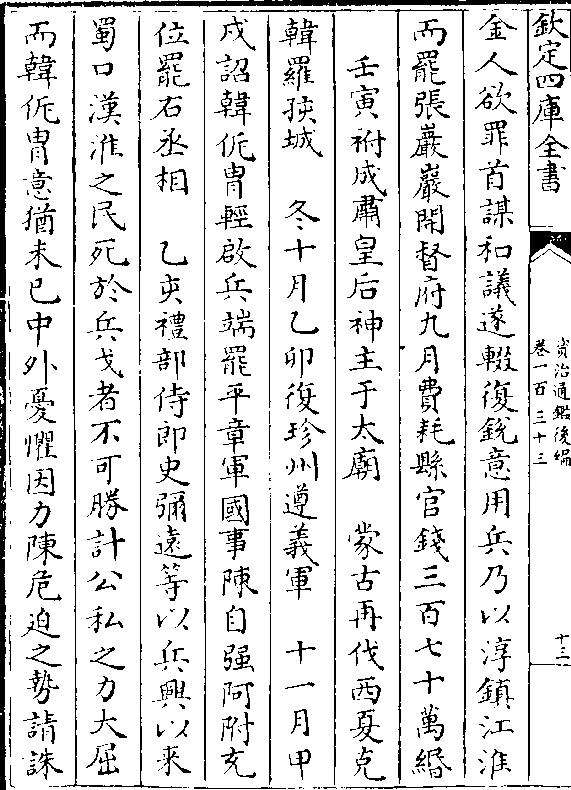 欽定四庫全書
資治通鑑後編
卷一百三十三
十三
金人欲罪首謀和議遂輟復銳意用兵乃以淳鎮江淮
而罷張巖巖開督府九月費耗縣官錢三百七十萬緡
壬寅祔成肅皇后神主于太廟 蒙古再伐西夏克
韓羅孩城 冬十月乙卯復珍州遵義軍 十一月甲
戌詔韓侂胄輕啟兵端罷平章軍國事陳自强阿附充
位罷右丞相 乙亥禮部侍郎史彌遠等以兵興以来
蜀口漢淮之民死於兵戈者不可勝計公私之力大屈
而韓侂胄意猶未已中外憂懼因力陳危迫之勢請誅